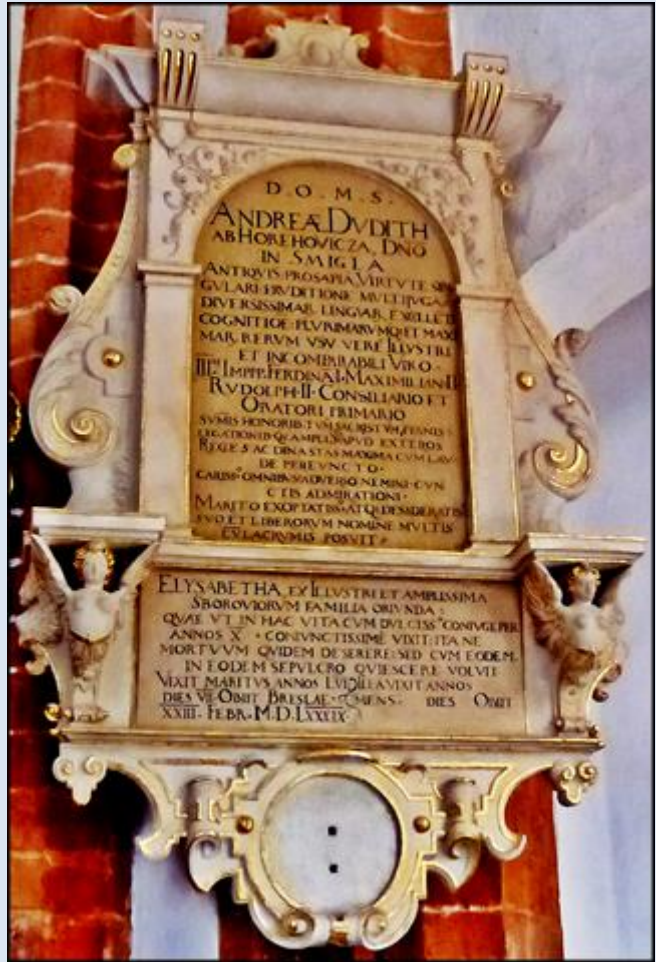 D.O.M.S.
ANDREÆ DVDITH
AB HOREHOVICZA, DNO
IN SMIGLA
ANTIQVIS. PROSAPIA, VIRTVTE SIN
GVLARI ERVDITIONE MULTIIVGA
DIVERSISSIMAR. LINGVAR. EXCELLETI
COGNITIOE PLVRIMARVMQ ET MAXI
MAR. RERVM VSV VERE ILLVSTRI
ET INCOMPARABILI VIRO.
III. IMPPP. FERDINA I. MAXIMILIAN II
RVDOLPH II CONSILIARIO ET
ORATORI PRIMARIO
SVMIS HONORIB.
LEGATIONIB. APVD EXTEROS
REGES AC DINASTAS MAXIMA CVM LAV
DE PERFVNCTO.
CARISS OMNIBVS ADVERSO NEMINI CVN
CTIS ADMIRATIONI.
MARITO EXOPTATISS. ATQ DESIDERATIS
SVO ET LIBERORVM NOMINE MVLTIS
CV LACRVMIS POSVIT.
ELYSABETHA, EX ILLVSTRI ET AMPLISSIMA
SBOROVIORVM FAMILIA ORIVNDA:
QVAE VT IN HAC VITA CVM DVLCISS CONIVGE PER
ANNOS X. CONIVNCTISSIME VIXIT: ITA NE
MORTVVM QVIDEM DESERERE: SED CVM EODEM
IN EODEM SEPVLCRO QVIESCERE VOLVIT
VIXIT MARITVS ANNOS ILLA VIXIT ANNOS
DIES VII. OBIIT BRESLAE MENS. DIES OBIIT
XXIII. FEBR. M.D.LXXXIX